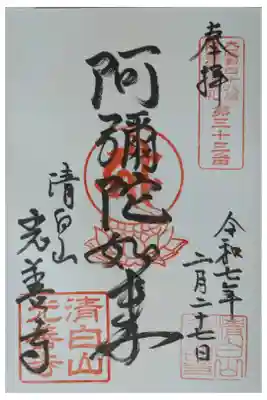 奉拝
第三十三番
阿彌陀如来
清白山
光善寺
令和七年
二月二十七日
清白山
光善寺